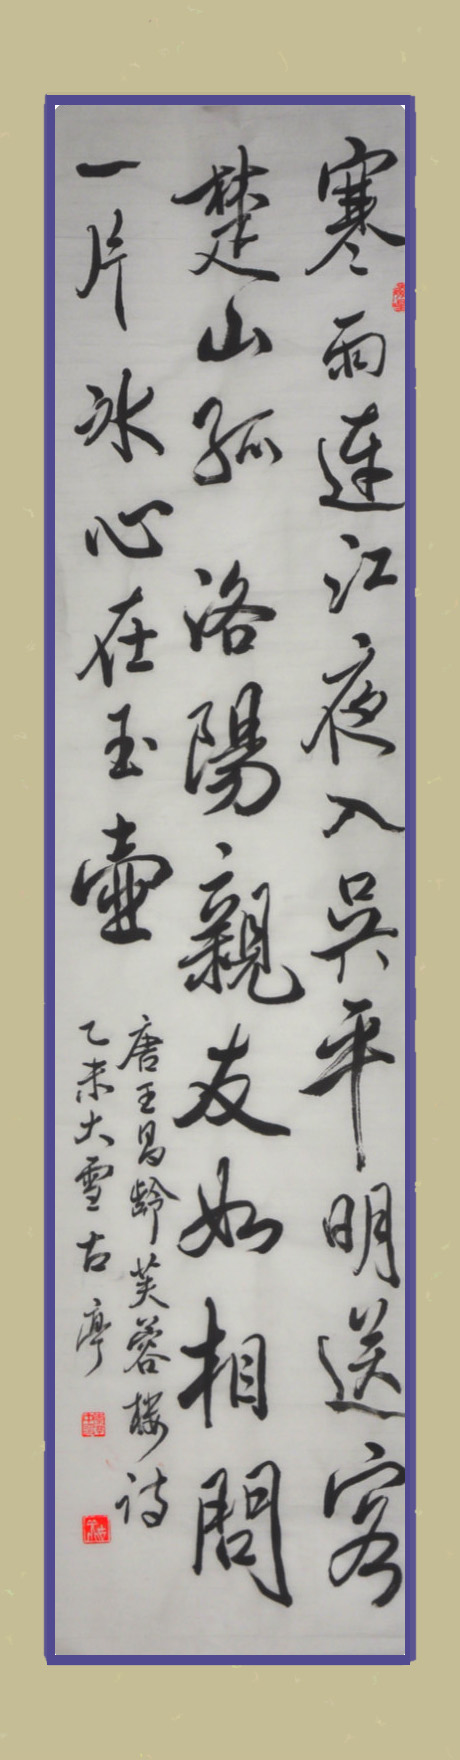 寒雨連江夜入吳平明送客
楚山孤洛陽親友如相問
一片冰心在玉壺
唐王昌齡芙蓉樓詩
乙未大雪古亭